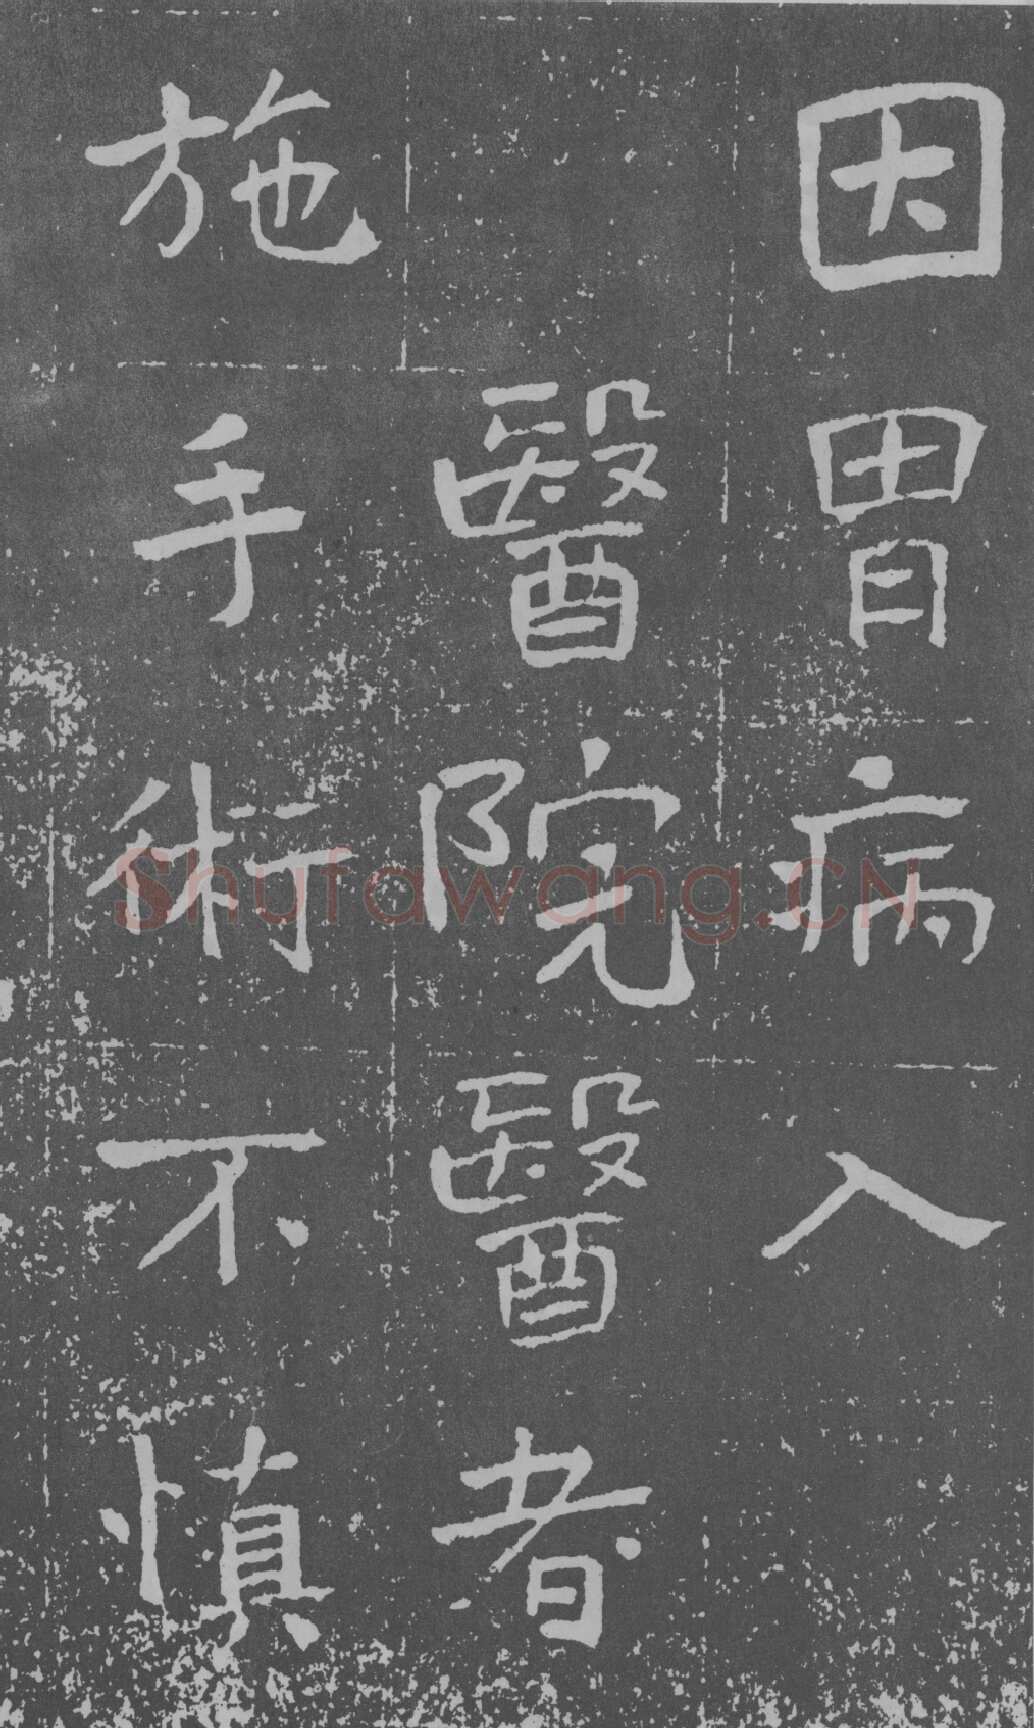 因胃病入
醫院醫者
施手術不慎
Shufawang.CN